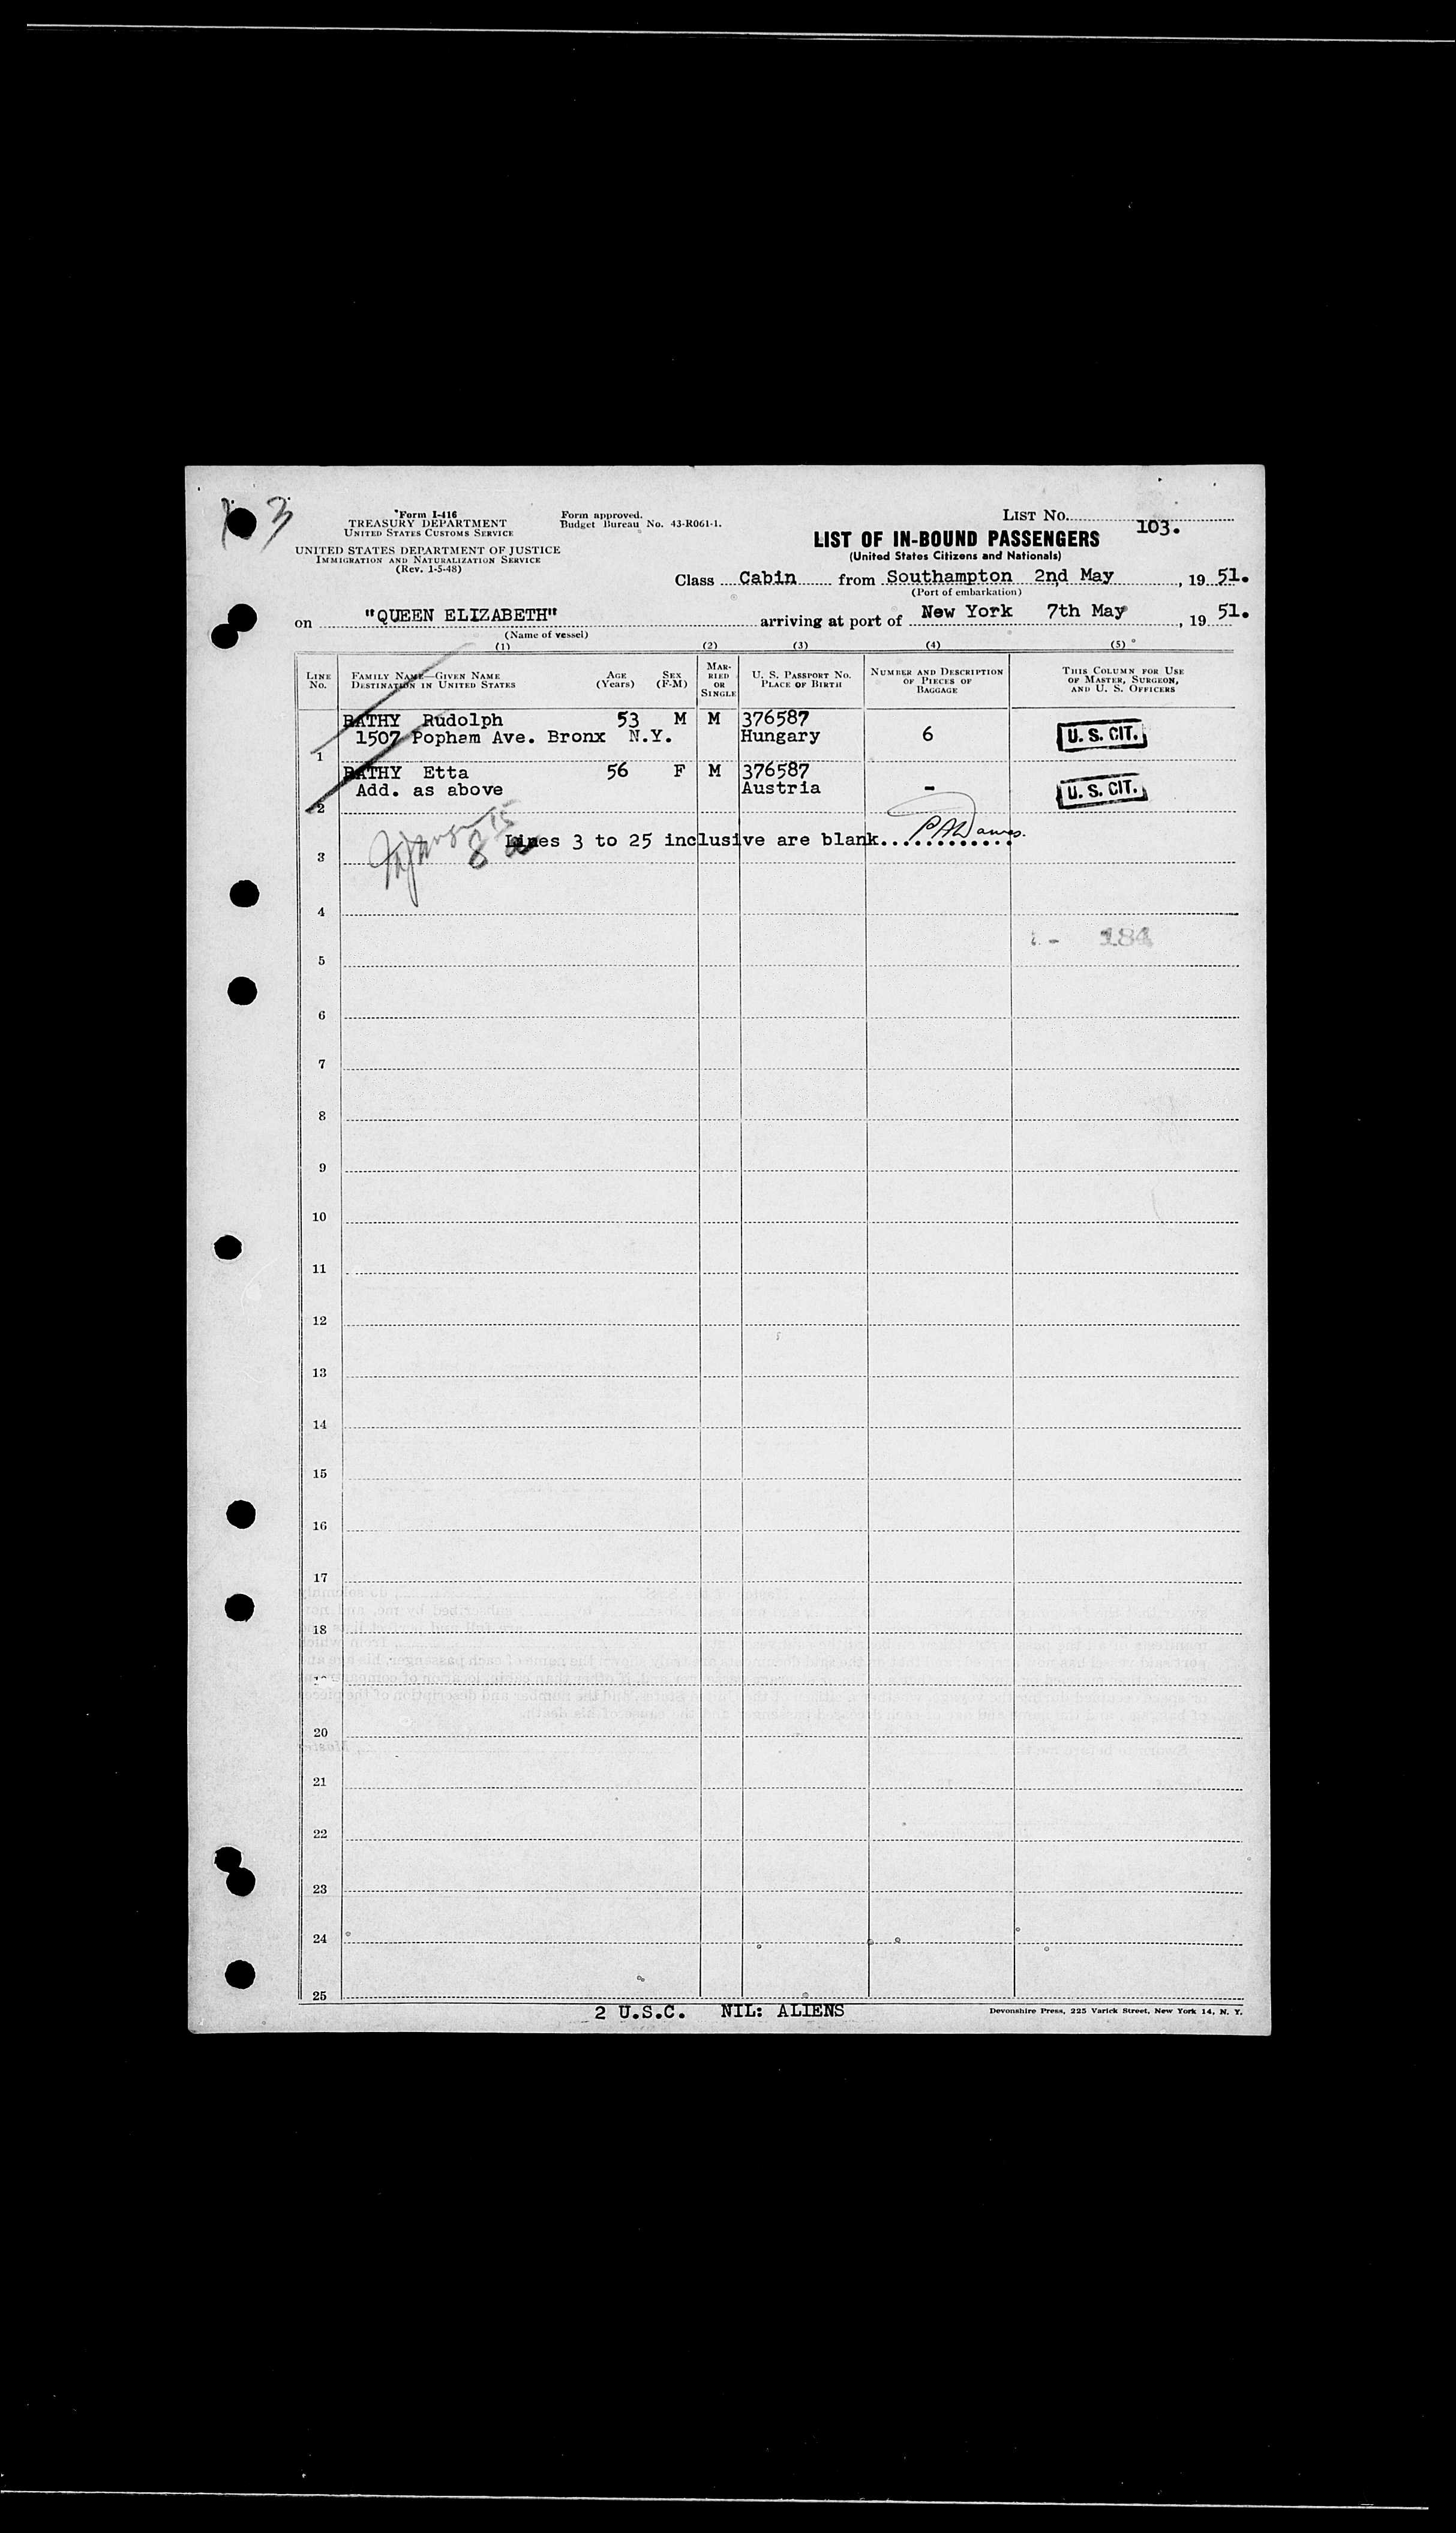 Form I-416
TREASURY DEPARTMENT
UNITED STATES CUSTOMS SERVICE
UNITED STATES DEPARTMENT OF JUSTICE
IMMIGRATION AND NATURALIZATION SERVICE
(Rev. 1-5-48)
Form approved.
Budget Bureau No. 43-R061-1.
LIST No. 103.
LIST OF IN-BOUND PASSENGERS
(United States Citizens and Nationals)
Class Cabin from Southampton 2nd May, 19 51.
(Port of embarkation)
on "QUEEN ELIZABETH" arriving at port of New York 7th May, 19 51.
(Name of vessel)
(1) (2) (3) (4) (5)
LINE No. FAMILY NAME—GIVEN NAME DESTINATION IN UNITED STATES AGE (Years) SEX (F-M) MARRIED OR SINGLE U. S. PASSPORT NO. PLACE OF BIRTH NUMBER AND DESCRIPTION OF PIECES OF BAGGAGE THIS COLUMN FOR USE OF MASTER, SURGEON, AND U. S. OFFICERS
BATHY Rudolph 53 M M 376587
1 1507 Popham Ave. Bronx N.Y. Hungary 6 U. S. CIT.
BATHY Etta 56 F M 376587
2 Add. as above Austria - U. S. CIT.
3 Lines 3 to 25 inclusive are blank............
4
184
5
6
7
8
9
10
11
12
13
14
15
16
17
18
20
21
22
23
24
25
2 U.S.C. NIL: ALIENS
Devonshire Press, 225 Varick Street, New York 14, N. Y.